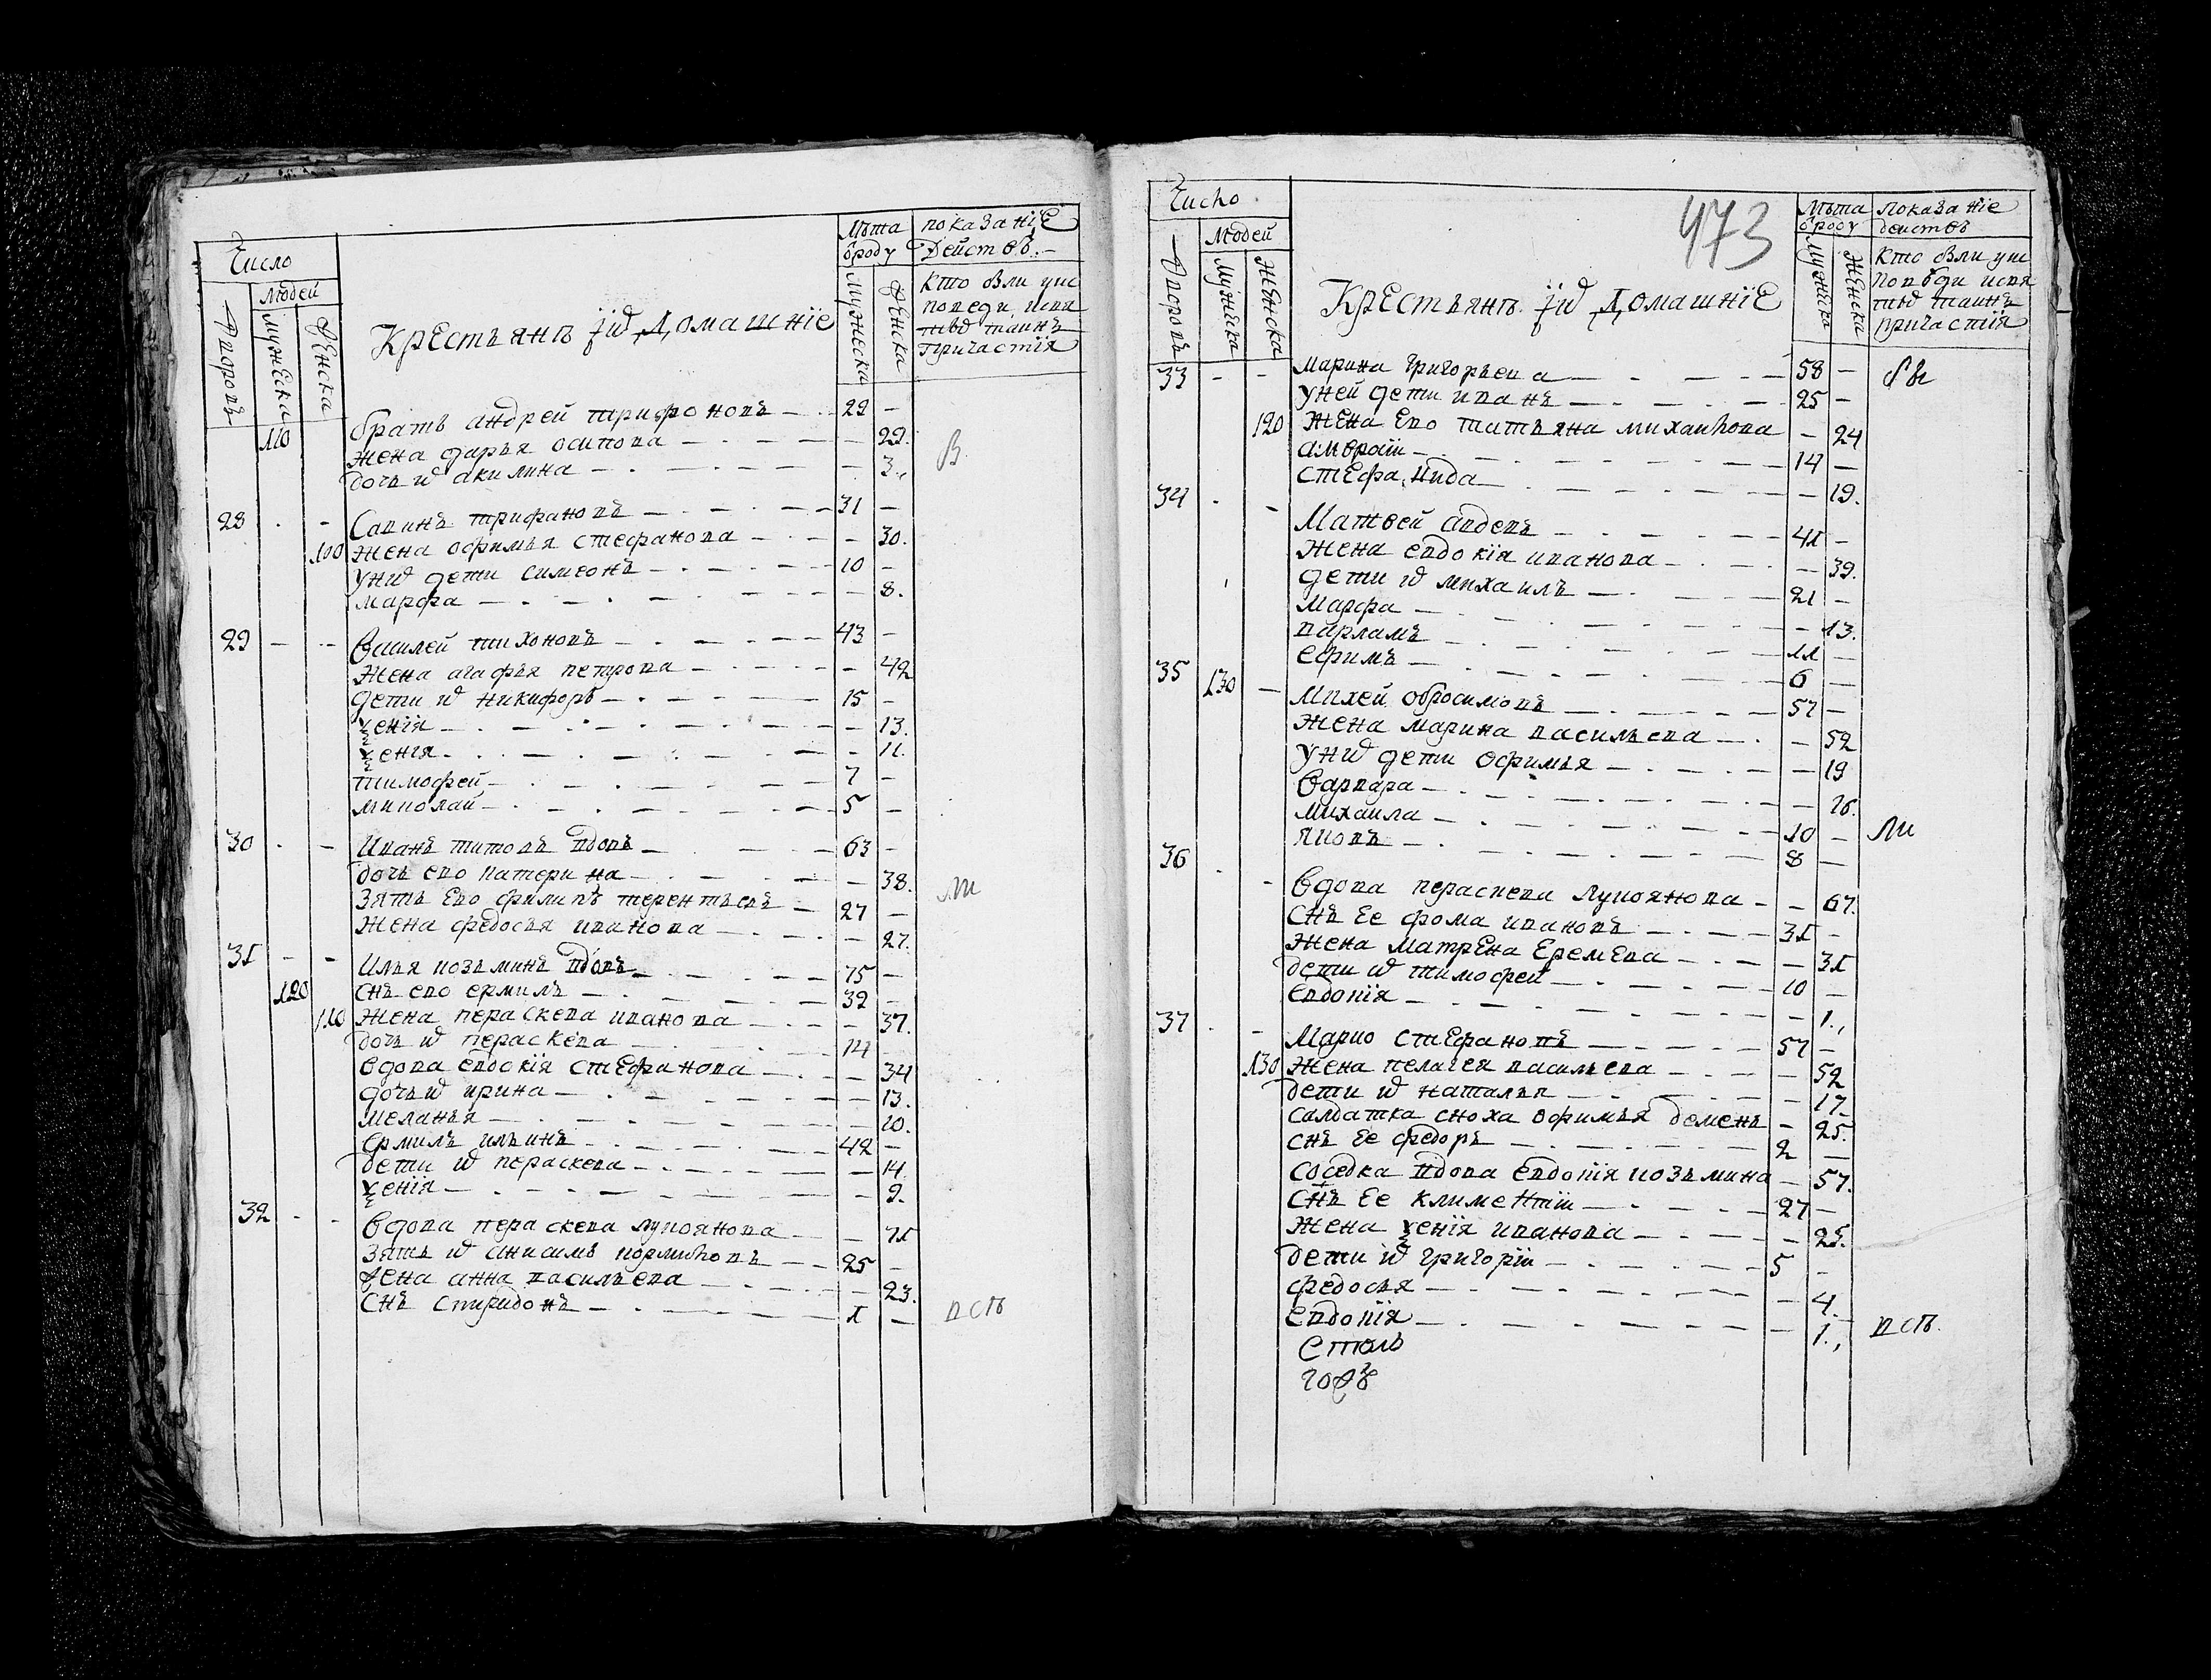 Число
Людей
Дворовъ
Мужеска
Женска
Крестьянѣ і ихъ Домашніе
Лѣта
ѿ роду
Мужеска
Женска
показаніе
Действъ
кто были уис
поведи, испи
свѣ таинъ
Причастія
110 братъ андрей трифоновъ 29
жена дарья осипова 29. в
дочь их акилина 3.,
28 Савинъ трифановъ 31
100 жена офимья стефанова 30.
у них дети симеонъ 10
марфа 8.
29 Василей тихоновъ 43
жена агафья петрова 42
дети их никифоръ 15
ѯенія 13.
ѯенія 11.
тимофей 7
миколай 5
30 Иванъ титовъ вдовъ 63
дочь ево катерина 38.
зять ево филипъ терентьевъ 27 ли
жена федосья иванова 27.
31 Илья козьминъ вдовъ 75
120 снъ ево ермилъ 39
110 жена пераскева иванова 37.
дочь их пераскева 14
вдова евдокія стефанова 34
дочь их ирина 13.
меланья 10.
ермилъ ильинъ 42
дети их пераскева 14
ѯенія 9.
32 Вдова пераскева лукоянова 71
зять их анисимъ кормиловъ 25
жена анна васильева 23.
снъ спиридонъ 1 в ст
473
Число
Людей
Дворовъ
Мужеска
Женска
Крестьянѣ і ихъ Домашніе
Лѣта
ѿ роду
Мужеска
Женска
показаніе
действъ
кто были уис
поведи испи
свѣ таинъ
причастія
33 Марина григорьева 58
у ней дети иванъ 25
120 жена ево татьяна михаилова 24
амвросіи 14
стефанида 19.
34 Матвей авдевъ 41
жена евдокія иванова 39.
дети их михаилъ 21
марфа 13.
варламъ 11
ефимъ 6
35 130 михей обросимовъ 57
жена марина васильева 52
у них дети офимья 19
варвара 16.
михаила 10 ли
яковъ 8
36 Вдова пераскева лукоянова 67.
снъ ее фома ивановъ 31
жена матрена еремева 31
дети их тимофей 10
евдокія 1.,
37 Марко стефановъ 57
130 жена пелагея васильева 52
дети их наталья 17.
салдатка сноха офимья деменъ 25.
снъ ее федоръ 2
соседка вдова евдокія козьмина 57.
снъ ее климентіи 27
жена ѯенія иванова 25.
дети их григоріи 5
федосья 4.
евдокія 1., в ст